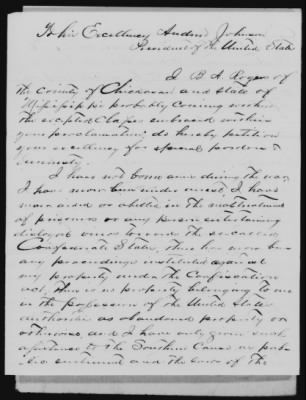 To his Excellency Andrew Johnson
President of the United State
I B A Roger of
the County of Chickasaw and state of
Mississippi probably coming within
the excepted class embraced within
your proclamation; do hereby petition
your excellency for special pardon &
amnesty.
I have not borne arms during the war
I have never been under arrest, I have
never aided or abetted in the
of prisoners or any person entertaining
disloyal views toward the
Confederate States, there has never been
any proceedings instituted against
my property under the Confiscation
act, there is no property belonging to me
in the possession of the United States
authorities as abandoned property or
otherwise, and I have only given such
assistance to the Southern Cause as pub-
lic sentiment and the laws of the